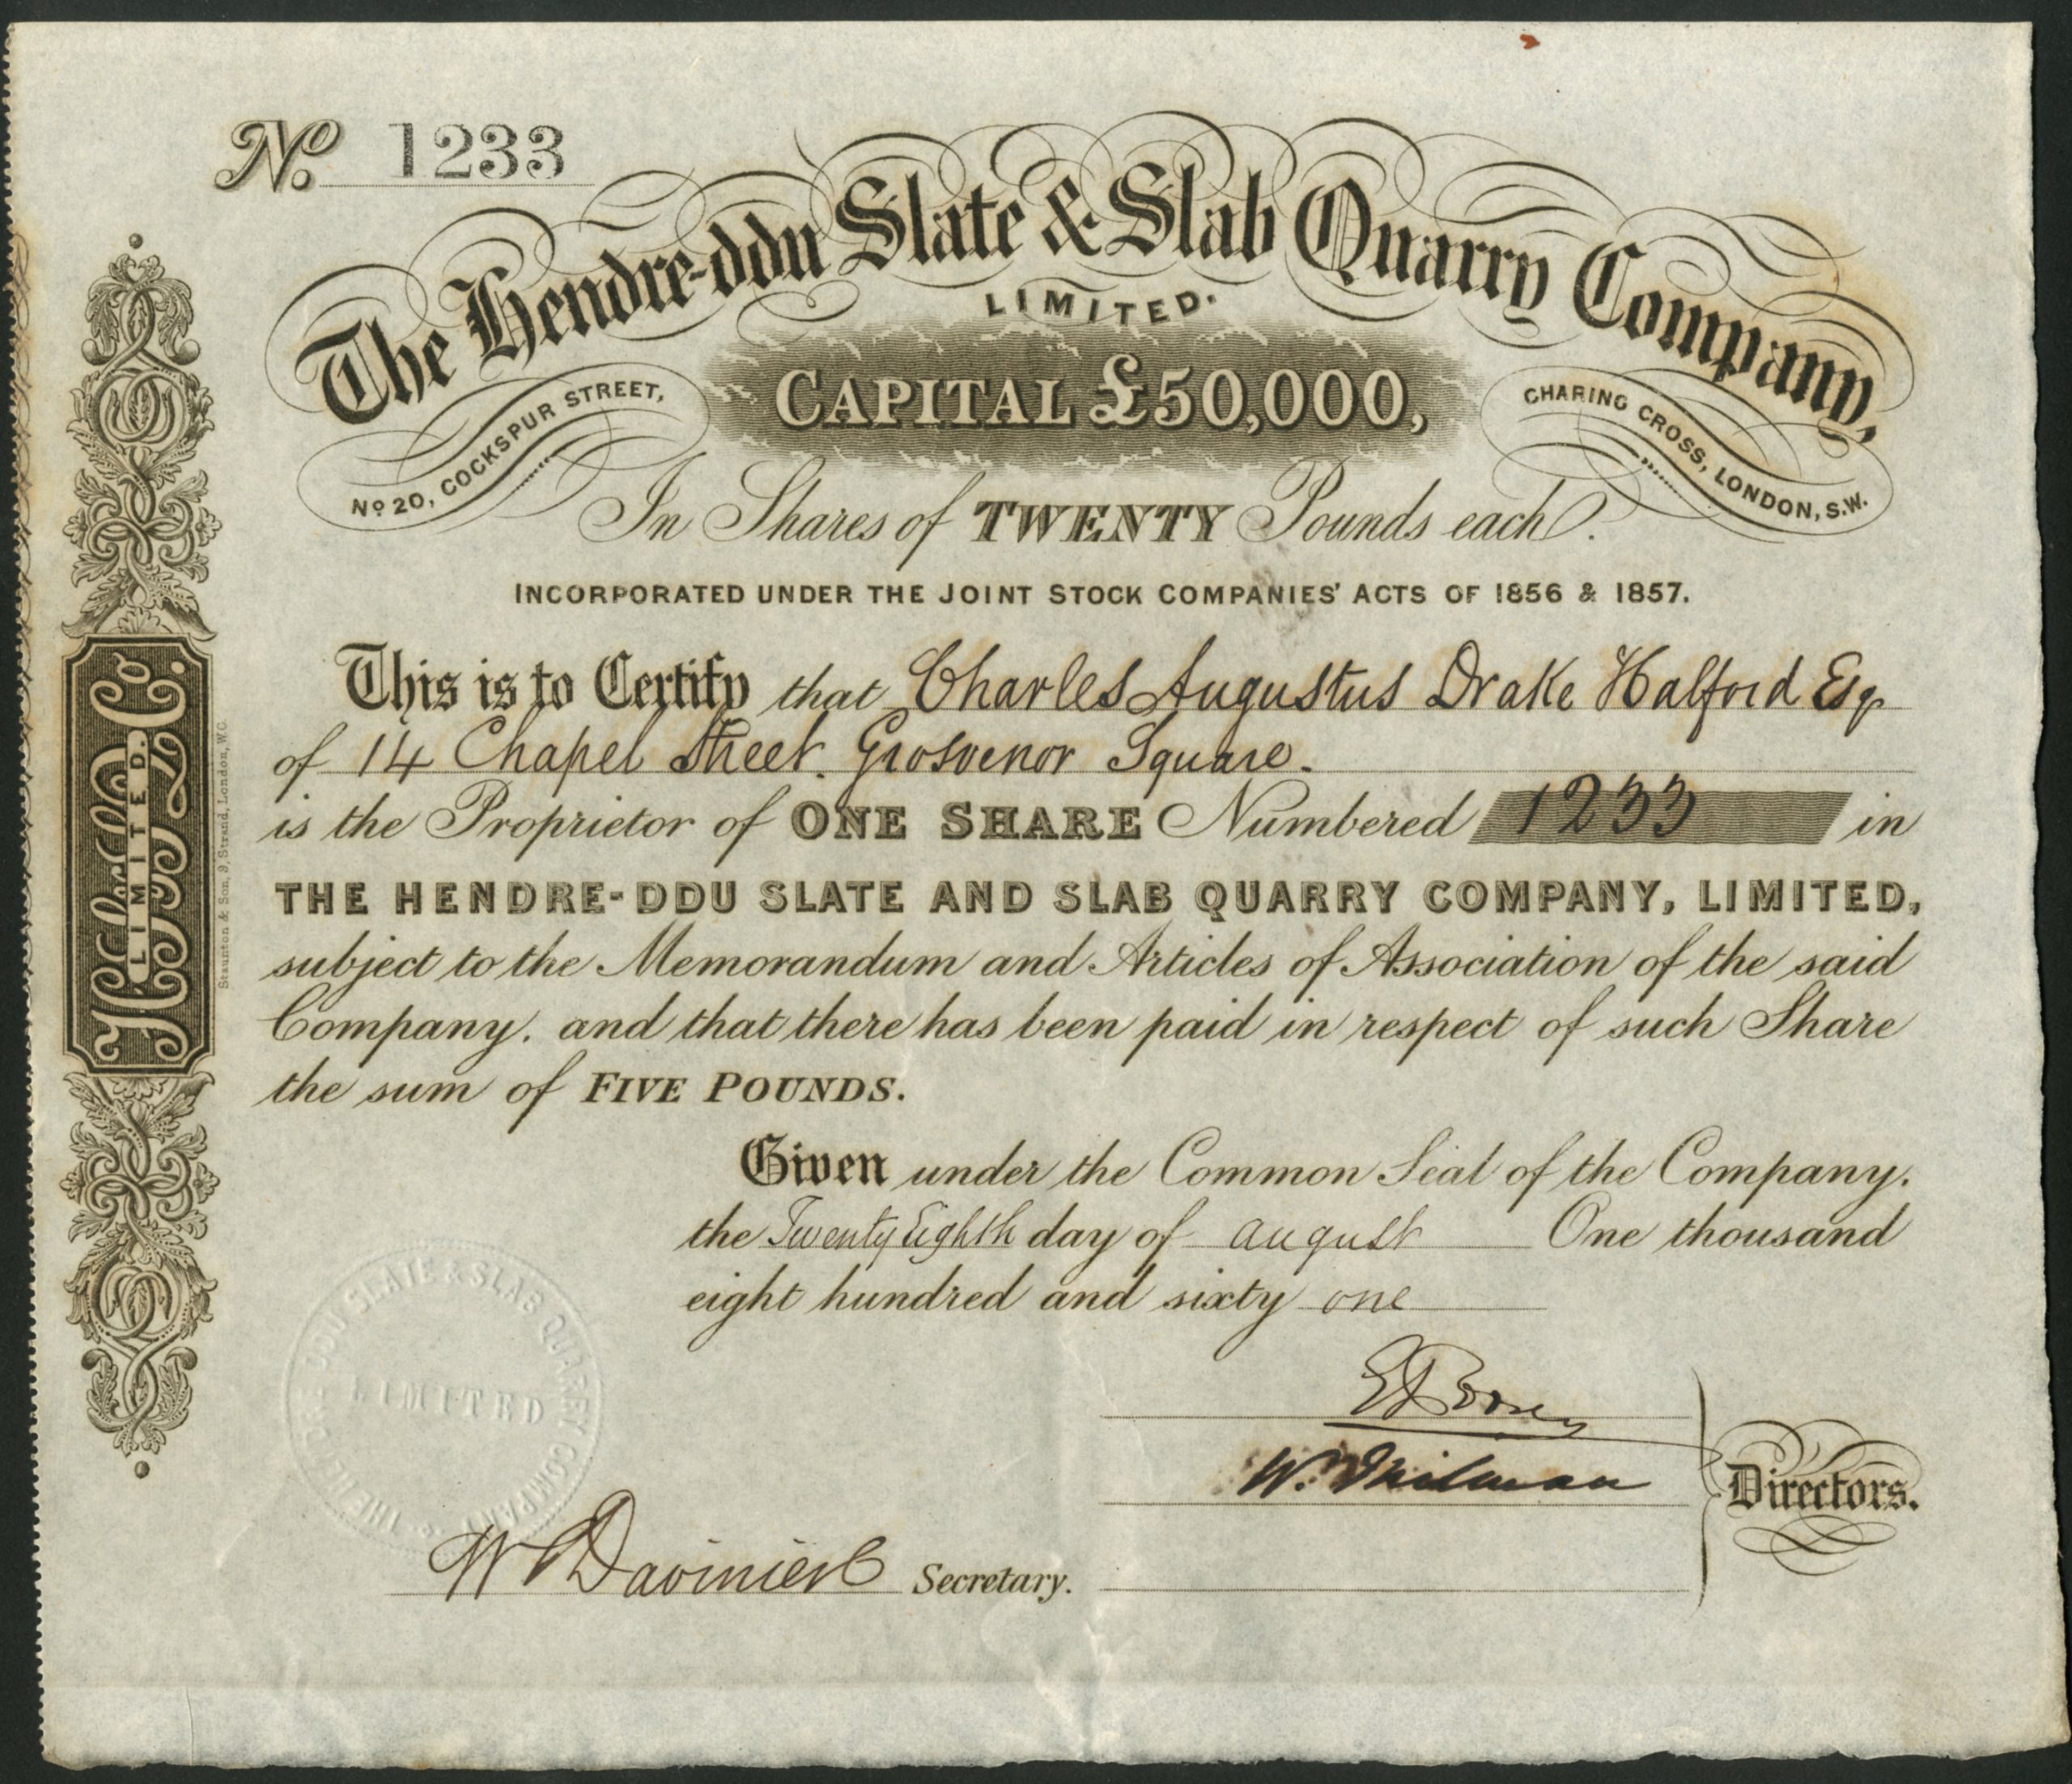 No. 1233
The Hendre-ddu Slate & Slab Quarry Company,
LIMITED.
CAPITAL £50,000,
No 20, COCKSPUR STREET,
CHARING CROSS, LONDON, S.W.
In Shares of TWENTY Pounds each.
INCORPORATED UNDER THE JOINT STOCK COMPANIES' ACTS OF 1856 & 1857.
This is to Certify that Charles Augustus Drake Halford Esqr
of 14 Chapel Street. Grosvenor Square.
is the Proprietor of ONE SHARE Numbered 1233 in
THE HENDRE-DDU SLATE AND SLAB QUARRY COMPANY, LIMITED,
subject to the Memorandum and Articles of Association of the said
Company, and that there has been paid in respect of such Share
the sum of FIVE POUNDS.
Given under the Common Seal of the Company,
the Twenty Eighth day of august One thousand
eight hundred and sixty one
W. Milman
Directors.
Secretary.
THE HENDRE DDU SLATE & SLAB QUARRY COMPANY
LIMITED
LIMITED.
Staunton & Son, 9, Strand, London, W.C.